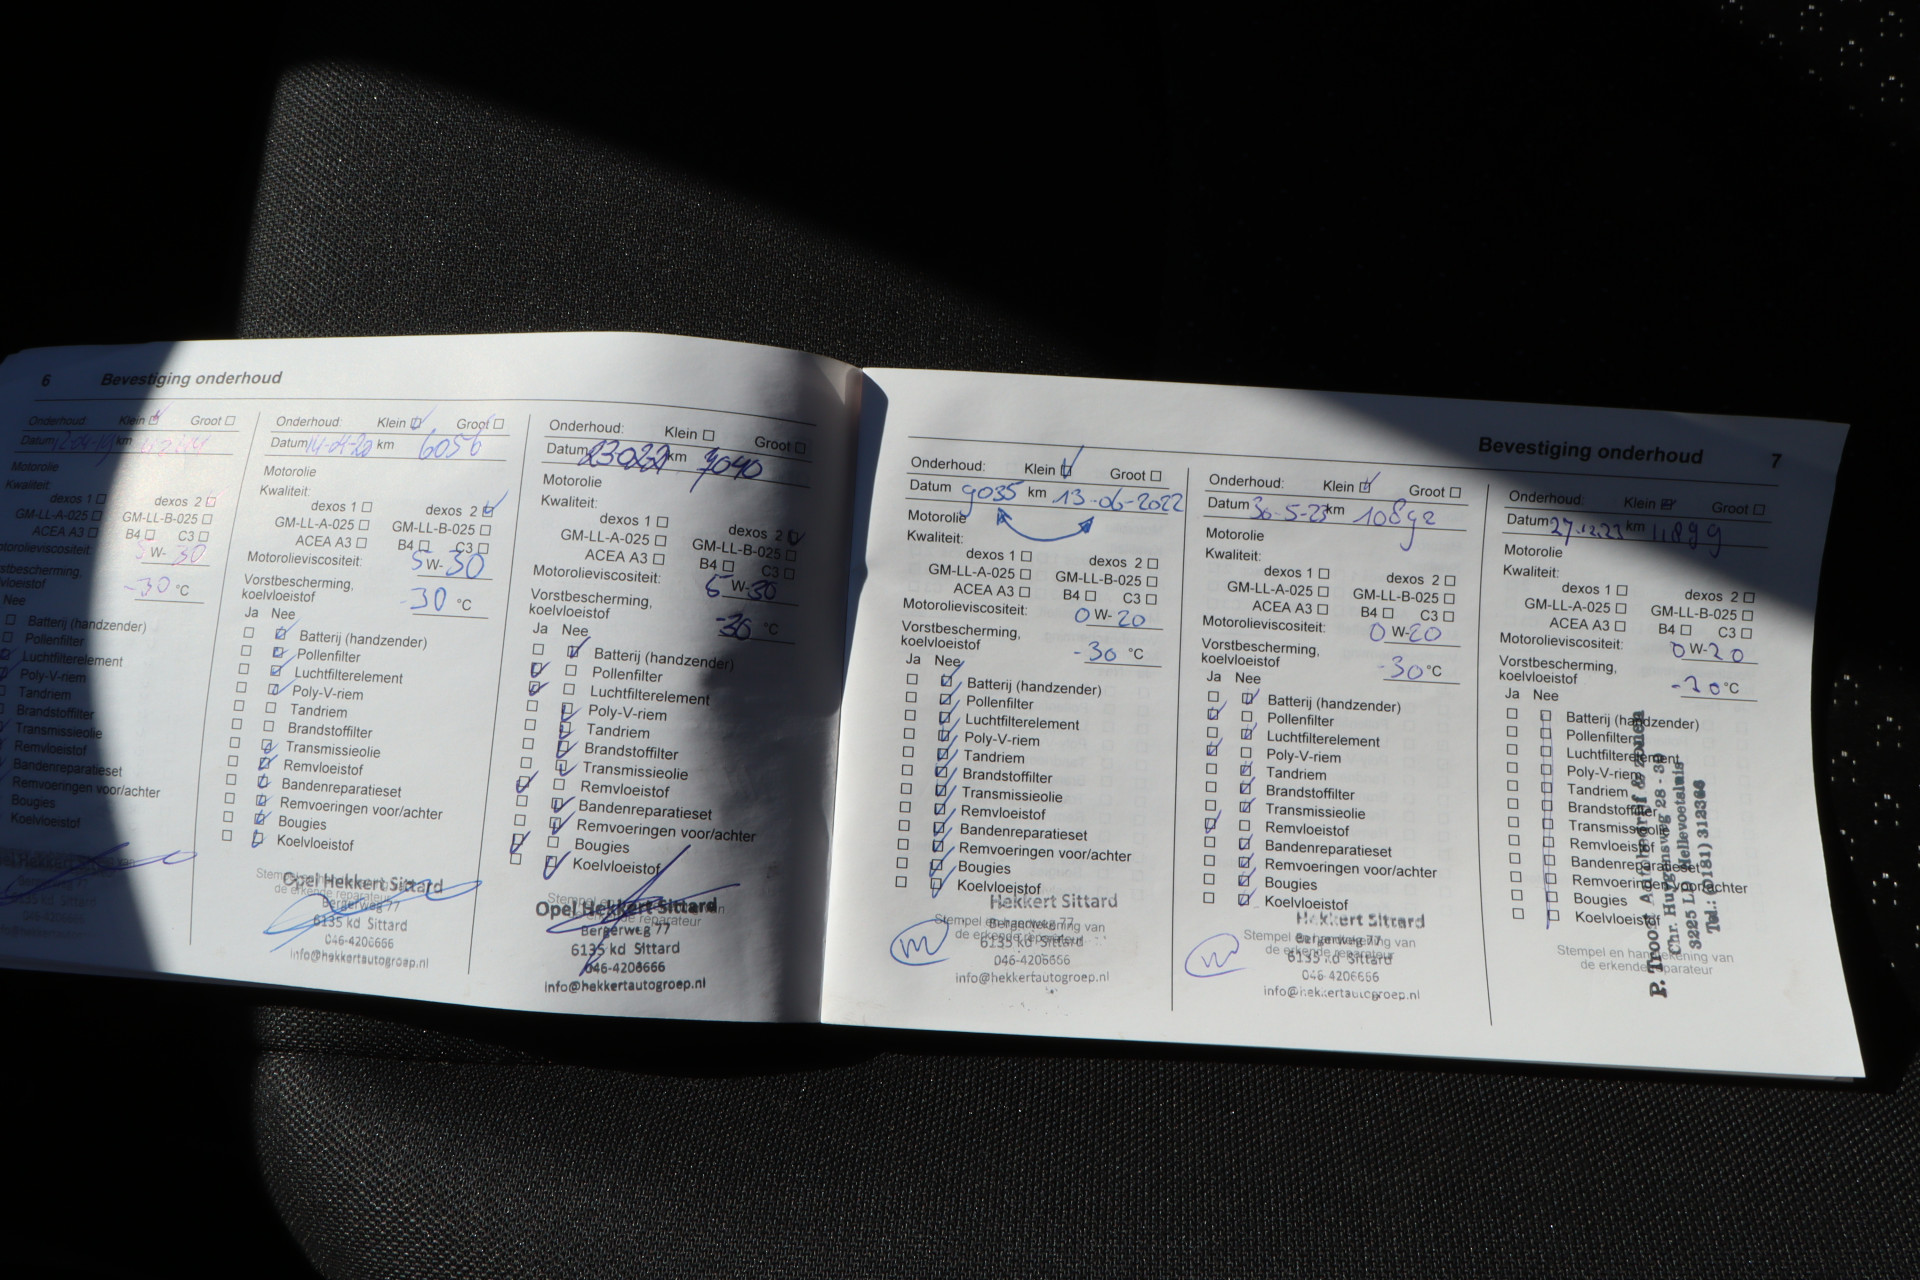 6 Bevestiging onderhoud
Onderhoud: Klein Groot
Datum km
Motorolie
Kwaliteit:
dexos 1 dexos 2
GM-LL-A-025 GM-LL-B-025
ACEA A3 B4 C3
5 W- 30
-30 °C
Nee
Batterij (handzender)
Pollenfilter
Luchtfilterelement
Poly-V-riem
Tandriem
Brandstoffilter
Transmissieolie
Remvloeistof
Bandenreparatieset
Remvoeringen voor/achter
Bougies
Koelvloeistof
Onderhoud: Klein Groot
Datum km 6056
Motorolie
Kwaliteit:
dexos 1 dexos 2
GM-LL-A-025 GM-LL-B-025
ACEA A3 B4 C3
Motorolieviscositeit: 5 W- 30
Vorstbescherming,
koelvloeistof -30 °C
Ja Nee
Batterij (handzender)
Pollenfilter
Luchtfilterelement
Poly-V-riem
Tandriem
Brandstoffilter
Transmissieolie
Remvloeistof
Bandenreparatieset
Remvoeringen voor/achter
Bougies
Koelvloeistof
Opel Hekkert Sittard
Bergerweg 77
6135 kd Sittard
046-4206666
info@hekkertautogroep.nl
Onderhoud: Klein Groot
Datum km 7040
Motorolie
Kwaliteit:
dexos 1 dexos 2
GM-LL-A-025 GM-LL-B-025
ACEA A3 B4 C3
Motorolieviscositeit: 5 W-30
Vorstbescherming,
koelvloeistof -30 °C
Ja Nee
Batterij (handzender)
Pollenfilter
Luchtfilterelement
Poly-V-riem
Tandriem
Brandstoffilter
Transmissieolie
Remvloeistof
Bandenreparatieset
Remvoeringen voor/achter
Bougies
Koelvloeistof
Opel Hekkert Sittard
Bergerweg 77
6135 kd Sittard
046-4206666
info@hekkertautogroep.nl
Bevestiging onderhoud 7
Onderhoud: Klein Groot
Datum 9035 km 13-06-2022
Motorolie
Kwaliteit:
dexos 1 dexos 2
GM-LL-A-025 GM-LL-B-025
ACEA A3 B4 C3
Motorolieviscositeit: 0 W- 20
Vorstbescherming,
koelvloeistof -30 °C
Ja Nee
Batterij (handzender)
Pollenfilter
Luchtfilterelement
Poly-V-riem
Tandriem
Brandstoffilter
Transmissieolie
Remvloeistof
Bandenreparatieset
Remvoeringen voor/achter
Bougies
Koelvloeistof
Hekkert Sittard
Stempel en handtekening van
de erkende reparateur
Bergerweg 77
6135 kd Sittard
046-4206666
info@hekkertautogroep.nl
Onderhoud: Klein Groot
Datum 30-5-23 km 10892
Motorolie
Kwaliteit:
dexos 1 dexos 2
GM-LL-A-025 GM-LL-B-025
ACEA A3 B4 C3
Motorolieviscositeit: 0 W-20
Vorstbescherming,
koelvloeistof -30 °C
Ja Nee
Batterij (handzender)
Pollenfilter
Luchtfilterelement
Poly-V-riem
Tandriem
Brandstoffilter
Transmissieolie
Remvloeistof
Bandenreparatieset
Remvoeringen voor/achter
Bougies
Koelvloeistof
Hekkert Sittard
Stempel en handtekening van
de erkende reparateur
Bergerweg 77
6135 kd Sittard
046-4206666
info@hekkertautogroep.nl
Onderhoud: Klein Groot
Datum 27.12.23 km 11899
Motorolie
Kwaliteit:
dexos 1 dexos 2
GM-LL-A-025 GM-LL-B-025
ACEA A3 B4 C3
Motorolieviscositeit: 0 W-20
Vorstbescherming,
koelvloeistof °C
Ja Nee
Batterij (handzender)
Pollenfilter
Luchtfilterelement
Poly-V-riem
Tandriem
Brandstoffilter
Transmissieolie
Remvloeistof
Bandenreparatieset
Remvoeringen voor/achter
Bougies
Koelvloeistof
Stempel en handtekening van
de erkende reparateur
P. Troost Autobedrijf & Zonen
Chr. Huygensweg 28 - 39
3225 LD Hellevoetsluis
Tel.: (0181) 312366